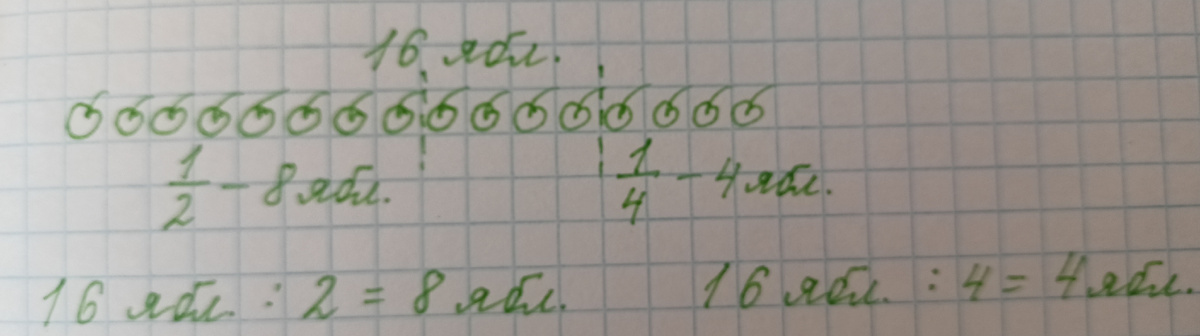 16 ябл.
1/2 – 8 ябл. 1/4 – 4 ябл.
16 ябл. : 2 = 8 ябл. 16 ябл. : 4 = 4 ябл.